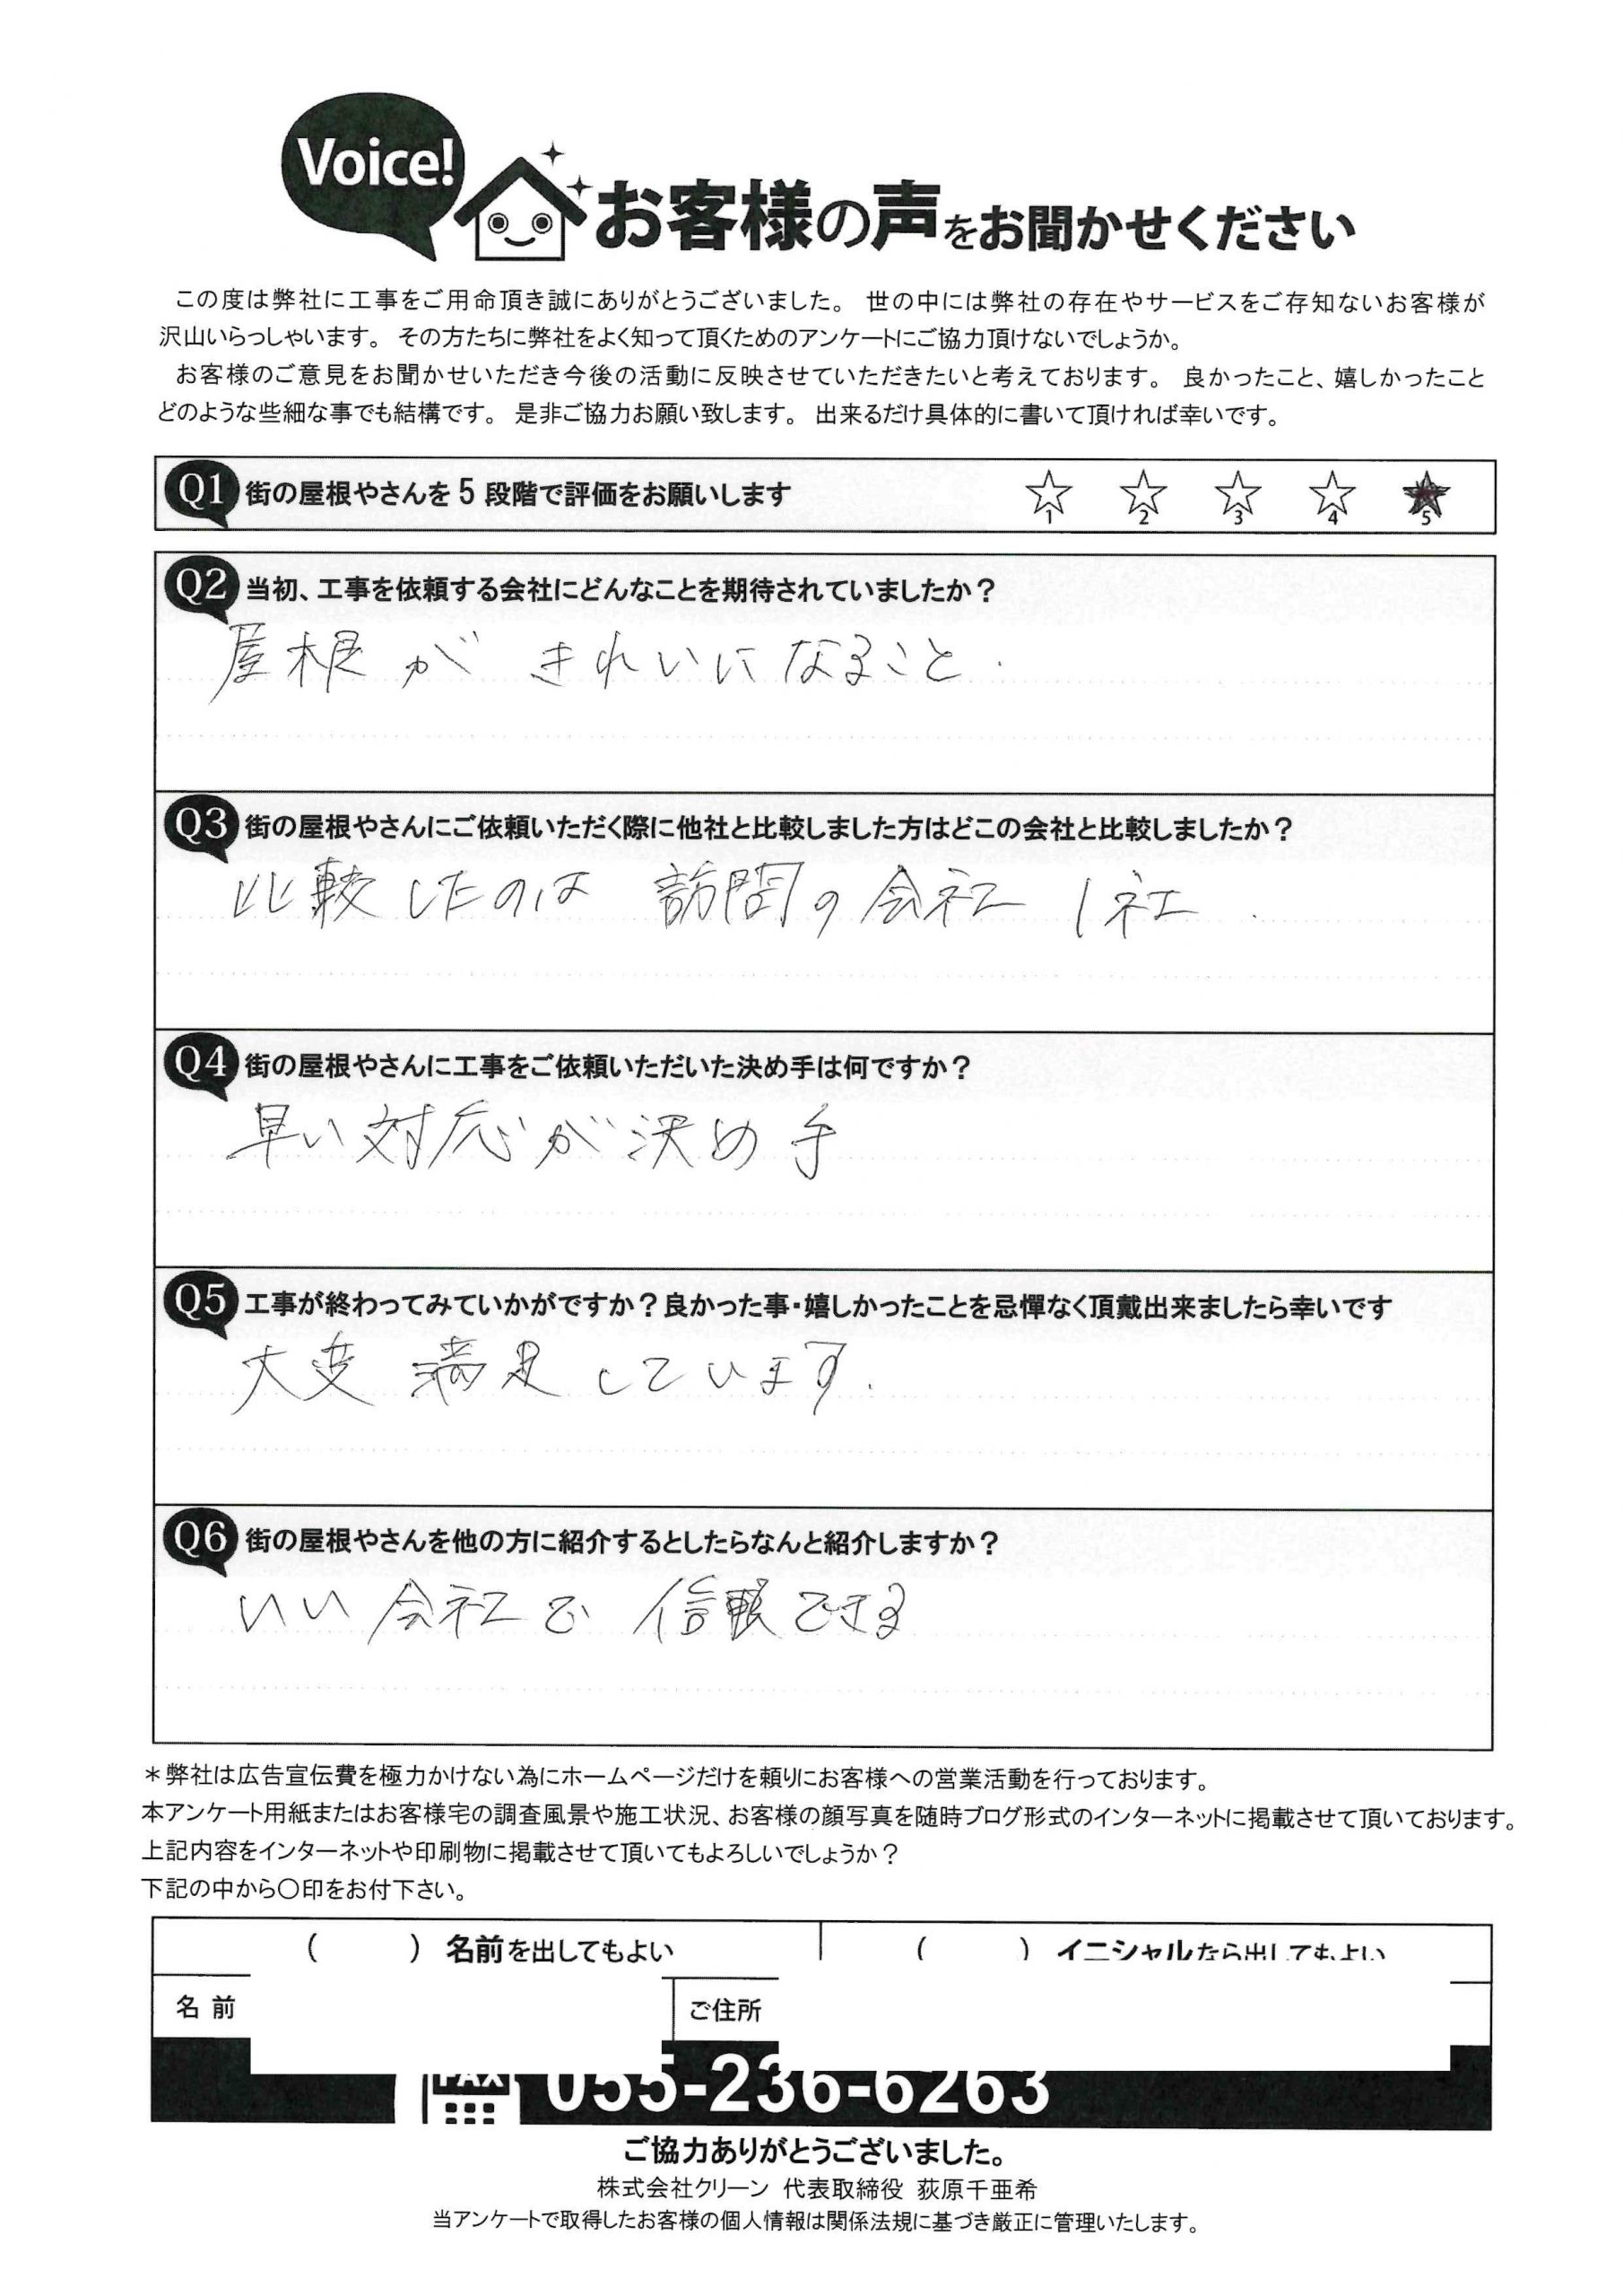 Voice!
お客様の声をお聞かせください
この度は弊社に工事をご用命頂き誠にありがとうございました。 世の中には弊社の存在やサービスをご存知ないお客様が
沢山いらっしゃいます。 その方たちに弊社をよく知って頂くためのアンケートにご協力頂けないでしょうか。
お客様のご意見をお聞かせいただき今後の活動に反映させていただきたいと考えております。 良かったこと、嬉しかったこと
どのような些細な事でも結構です。 是非ご協力お願い致します。 出来るだけ具体的に書いて頂ければ幸いです。
Q1 街の屋根やさんを5段階で評価をお願いします ☆1 ☆2 ☆3 ☆4 ★5
Q2 当初、工事を依頼する会社にどんなことを期待されていましたか？
屋根が きれいになること.
Q3 街の屋根やさんにご依頼いただく際に他社と比較しました方はどこの会社と比較しましたか？
比較したのは 訪問の会社 1社.
Q4 街の屋根やさんに工事をご依頼いただいた決め手は何ですか？
早い対応が決め手
Q5 工事が終わってみていかがですか？良かった事・嬉しかったことを忌憚なく頂戴出来ましたら幸いです
大変 満足しています.
Q6 街の屋根やさんを他の方に紹介するとしたらなんと紹介しますか？
いい会社で 信頼できる
＊弊社は広告宣伝費を極力かけない為にホームページだけを頼りにお客様への営業活動を行っております。
本アンケート用紙またはお客様宅の調査風景や施工状況、お客様の顔写真を随時ブログ形式のインターネットに掲載させて頂いております。
上記内容をインターネットや印刷物に掲載させて頂いてもよろしいでしょうか？
下記の中から〇印をお付下さい。
（　　）名前を出してもよい （　　）イニシャルなら出してもよい
名前 ご住所
FAX 055-236-6263
ご協力ありがとうございました。
株式会社クリーン 代表取締役 荻原千亜希
当アンケートで取得したお客様の個人情報は関係法規に基づき厳正に管理いたします。